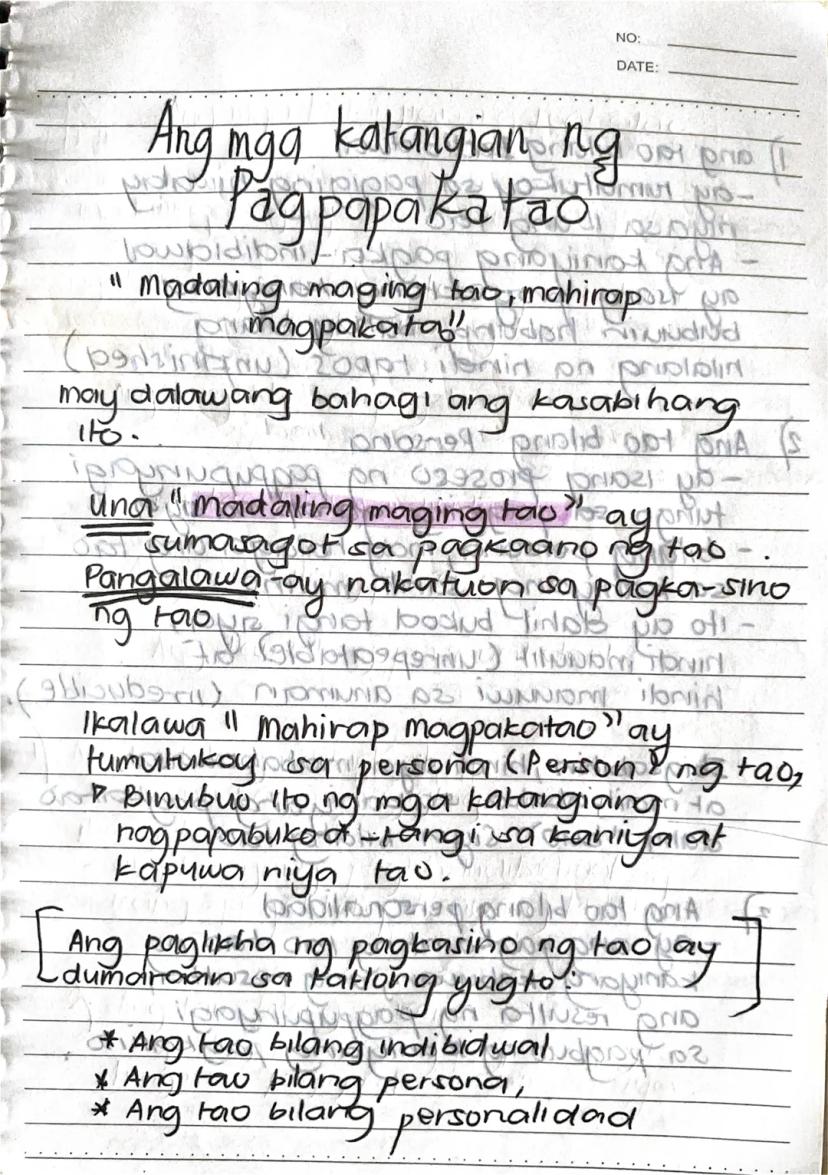 NO:
DATE:
Ang mga katangian ng
Pagpapakatao
" Madaling maging tao, mahirap
magpakatao"
may dalawang bahagi ang kasabihang
ito.
Una "madaling maging tao" ay
sumasagot sa pagkaano ng tao.
Pangalawa-ay nakatuon sa pagka-sino
ng tao
Ikalawa " Mahirap magpakatao" ay
tumutukoy sa persona (Person) ng tao,
▷ Binubuo ito ng mga katangiang
nagpapabukod-tangi sa kaniya at
kapuwa niya tao.
[Ang paglikha ng pagkasino ng tao ay
dumaraan sa tatlong yugto:]
* Ang tao bilang indibidwal
* Ang tao bilang persona,
* Ang tao bilang personalidad